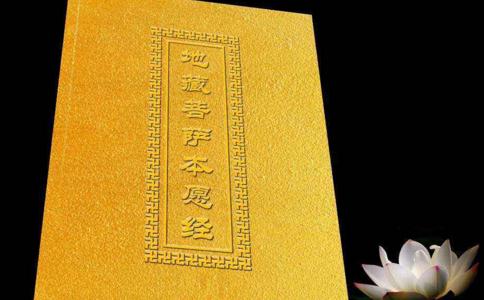 地藏菩萨本愿经